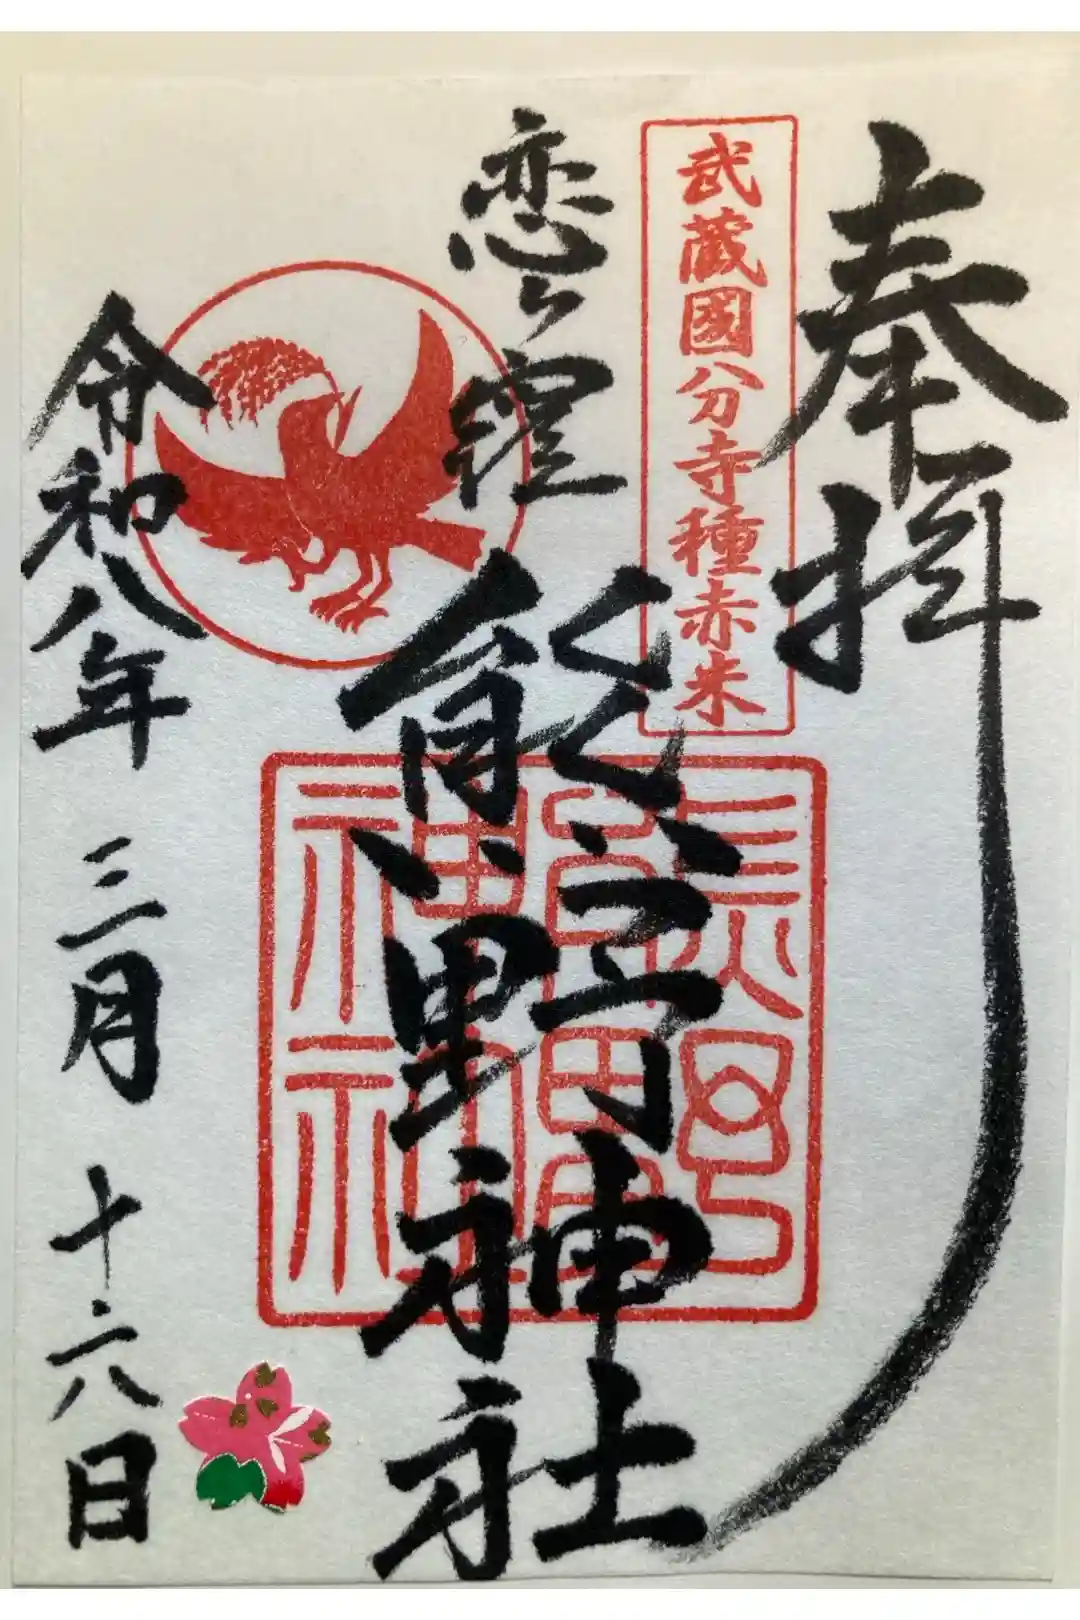 奉拝
武蔵國分寺種赤米
恋ヶ窪
熊野神社
熊野
神社
令和八年 三月 十六日